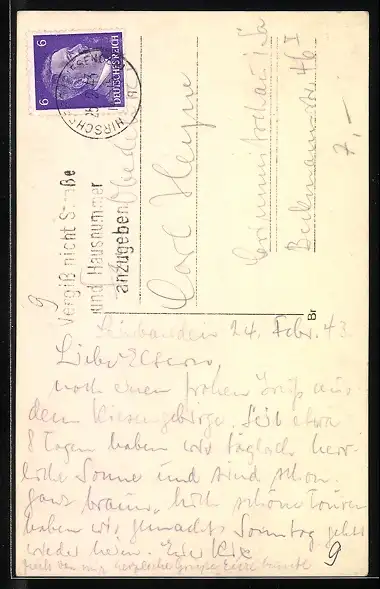 6 6
DEUTSCHES REICH
HIRSCHBERG
Vergiß nicht Straße
und Hausnummer
anzugeben
Carl Heyne
Crimmitschau i/Sa
7,-
Br
24. Febr. 43.
Liebe Eltern,
noch einen frohen Gruß aus
dem Riesengebirge. Seit etwa
8 Tagen haben wir täglich herr-
liche Sonne und sind schon
ganz braun, schöne Touren
haben wir gemacht. Sonntag geht's
wieder heim. Eure
herzliche Grüße, Eure
9
9